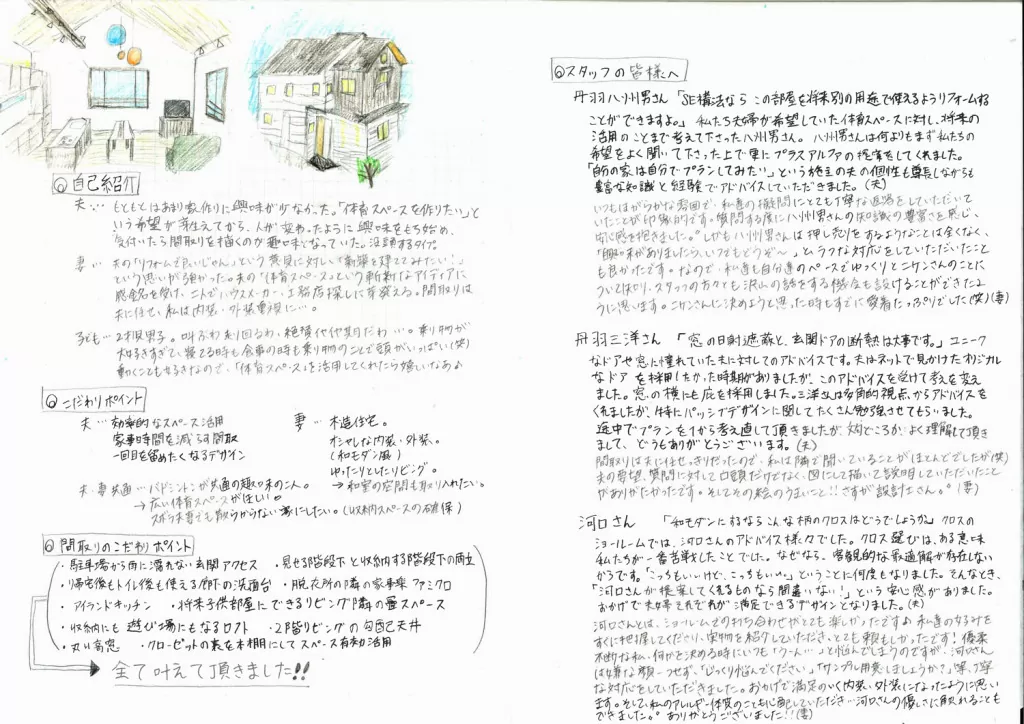 ◎自己紹介
夫… もともとはあまり家作りに興味が少なかった。「体育スペースを作りたい」と
いう希望が芽生えてから、人が変わったように興味をもち始め、
気付いたら間取りを描くのが趣味となっていた。没頭するタイプ。
妻… 夫の「リフォームで良いじゃん」という意見に対し、「新築を建ててみたい!」
という思いが強かった。夫の「体育スペース」という斬新なアイディアに
感銘を受け、二人でハウスメーカー、工務店探しに芽覚える。間取りは
夫に任せ、私は内装・外装重視に…。
子ども… 2才児男子。叫ぶわ走り回るわ、絶賛イヤイヤ期だわ…。乗り物が
大好きすぎて、寝てる時も食事の時も乗り物のことで頭がいっぱい(笑)
動くことも好きなので、「体育スペース」を活用してくれたら嬉しいなぁ♪
◎こだわりポイント
夫… 効率的なスペース活用
家事時間を減らす間取
一同を留めたくなるデザイン
妻… 木造住宅。
オシャレな内装・外装。
(和モダン風)
ゆったりとしたリビング。
→和室の空間も取り入れたい。
夫・妻共通… バドミントンが共通の趣味の二人。
→広い体育スペースがほしい
ズボラ夫妻でも散らからない家にしたい。(収納スペースの確保)
◎間取りのこだわりポイント
・駐車場から雨に濡れない玄関アクセス ・見せる階段下と収納する階段下の両立
・帰宅後もトイレ後も使える廊下の洗面台 ・脱衣所の隣の家事楽ファミクロ
・アイランドキッチン ・将来子供部屋にできるリビング隣の畳スペース
・収納にも遊び場にもなるロフト ・2階リビングの勾配天井
・丸い窓 ・クローゼットの裏を本棚にしてスペース有効活用
全て叶えて頂きました!!
◎スタッフの皆様へ
丹羽八州男さん「SE構法なら この部屋を将来別の用途で使えるようリフォームする
ことができますよ。」 私たち夫婦が希望していた体育スペースに対し、将来の
活用のことまで考えて下さった八州男さん。八州男さんは何よりもまず私たちの
希望をよく聞いて下さった上で更にプラスアルファの提案をしてくれました。
「自分の家は自分でプランしてみたい」という施主の夫の個性も尊長しながらも
豊富な知識と経験でアドバイスしていただきました。(夫)
いつもほがらかな雰囲で、私達の疑問にとても丁寧な返答をしていただいて
いたことが印象的です。質問する度に八州男さんの知識の豊富さを感じ、
安心感を抱きました。しかも八州男さんは押し売りをするようなことは全くなく、
「興味がありましたら、いつでもどうぞ〜」というラフな対応をしていただいたこと
も良かったです。なので、私達も自分達のペースでゆっくりとニケンさんのことに
ついて知り、スタッフの方々とも沢山の話をする機会も設けることができたよ
うに思います。ニケンさんに決めようと思った時もすでに愛着たっぷりでした(笑)(妻)
丹羽三洋さん 「窓の日射遮蔽と、玄関ドアの断熱は大事です。」 ユニーク
なドアや窓に憧れていた夫に対してのアドバイスです。夫はネットで見かけたオリジナル
なドアを採用したかった時期がありましたが、このアドバイスを受けて考えを変え
ました。窓の横にも庇を採用しました。三洋さんは多角的視点からアドバイスを
くれましたが、特にパッシブデザインに関してたくさん勉強させてもらいました。
途中でプランを1から考え直して頂きましたが、夫のどころか よく理解して頂き
まして、どうもありがとうございます。(夫)
間取りは夫に任せっきりだったので、私は隣で聞いていることがほとんどでしたが(笑)
夫の希望、質問に対して口頭だけでなく、図にして描いて説明していただいたこと
がありがたかったです。そしてその絵のうまいこと!!さすが設計士さん。(妻)
河口さん 「和モダンにするならこんな柄のクロスはどうでしょうか」 クロスの
ショールームでは、河口さんのアドバイス様々でした。クロス選びは、ある意味
私たちが一番苦戦したことでした。なぜなら、客観的な最適解が存在しない
からです。「こっちもいいけど、こっちもいい。」ということに何度もなりました。そんなとき、
「河口さんが提案してくれるものなら間違いない!」という安心感がありました。
おかげで夫婦それぞれが満足できるデザインとなりました。(夫)
河口さんとは、ショールームでの打ち合わせがとても楽しかったです♪ 私達の好みを
すぐに把握してくださり、実物を紹介していただき、とても頼もしかったです! 優柔
不断な私、何かを決める時にいつも「う〜ん…」と悩んでしまうのですが、河口さん
は嫌な顔一つせず、「じっくり悩んでください」「サンプル用意しましょうか?」等、丁寧
な対応をしていただきました。おかげで満足のいく内装・外装になったように思い
ます。そして、私のアレルギー体質のことも心配していただき…河口さんの優しさに触れることも
できました。ありがとうございました!!(妻)